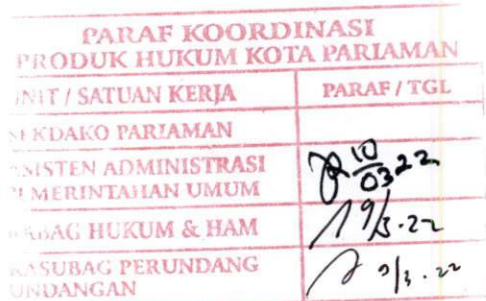 PARAF KOORDINASI
PRODUK HUKUM KOTA PARIAMAN
UNIT / SATUAN KERJA PARAF / TGL
SEKDAKO PARIAMAN
ASISTEN ADMINISTRASI
PEMERINTAHAN UMUM
10
03 22
KABAG HUKUM & HAM
9/3-22
KASUBAG PERUNDANG
UNDANGAN
9/3-22